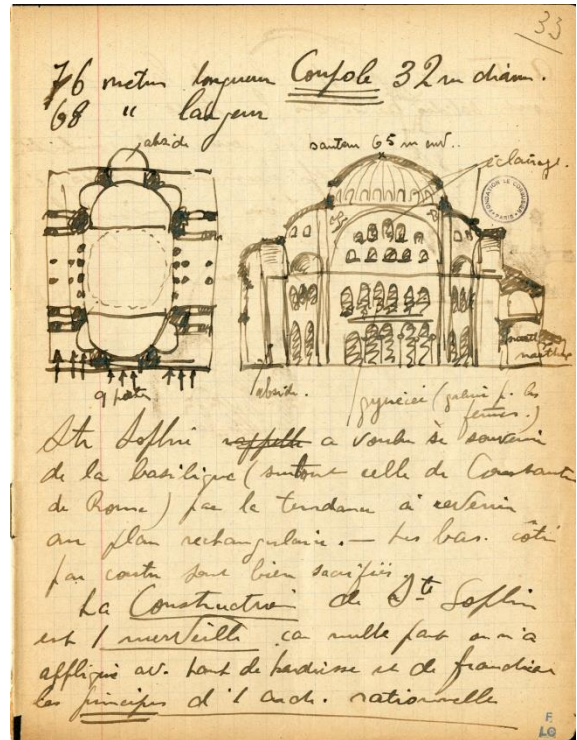 33
76 metres longueur Coupole 32 m diam.
68 " largeur
abside
hauteur 65 m env..
éclairage.
FONDATION LE CORBUSIER
narthex
9 portes
abside.
gynécée (galerie p. les
femmes.)
Ste Sophie rappelle a voulu se souvenir
de la basilique (surtout celle de Constantin
de Rome) par la tendance à revenir
au plan rectangulaire. — Les bas. côtés
par contre sont bien sacrifiés
La Construction de Ste Sophie
est 1 merveille car nulle part on n'a
appliqué av. tant de hardiesse et de franchise
les principes d'1 arch. rationnelle
F.
LC